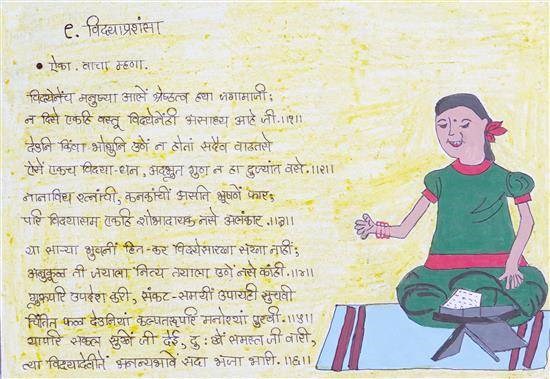 ९. विद्याप्रशंसा
• ऐका. वाचा म्हणा.
विद्येनेंच मनुष्या आलें श्रेष्ठत्व ह्या जगामाजी;
न दिसे एकहि वस्तू विद्येनेंही असाध्य आहे जी.॥१॥
देउनि किंवा भोगुनि उणें न होतां सदैव वाढतसे
ऐसें एकच विद्या-धन, अद्भुत गुण न हा दुज्यांत वसे.॥२॥
नानाविध रत्नांचीं, कनकांचीं असति भूषणें फार;
परि विद्यासम एकहि शोभादायक नसे अलंकार.॥३॥
या साऱ्या भुवनीं हित-कर विद्येसारखा सखा नाहीं;
अनुकूल ती जयाला नित्य तयाला उणें नसे कांहीं.॥४॥
गुरुपरि उपदेश करी, संकट-समयीं उपायही सुचवी
चिंतित फल देउनियां कल्पतरूपरि मनोरथां पुरवी.॥५॥
यापरि सकल सुखें जी देई, दु:खें समस्त जी वारी,
त्या विद्यादेवीतें अनन्यभावें सदा भजा भारी.॥६॥